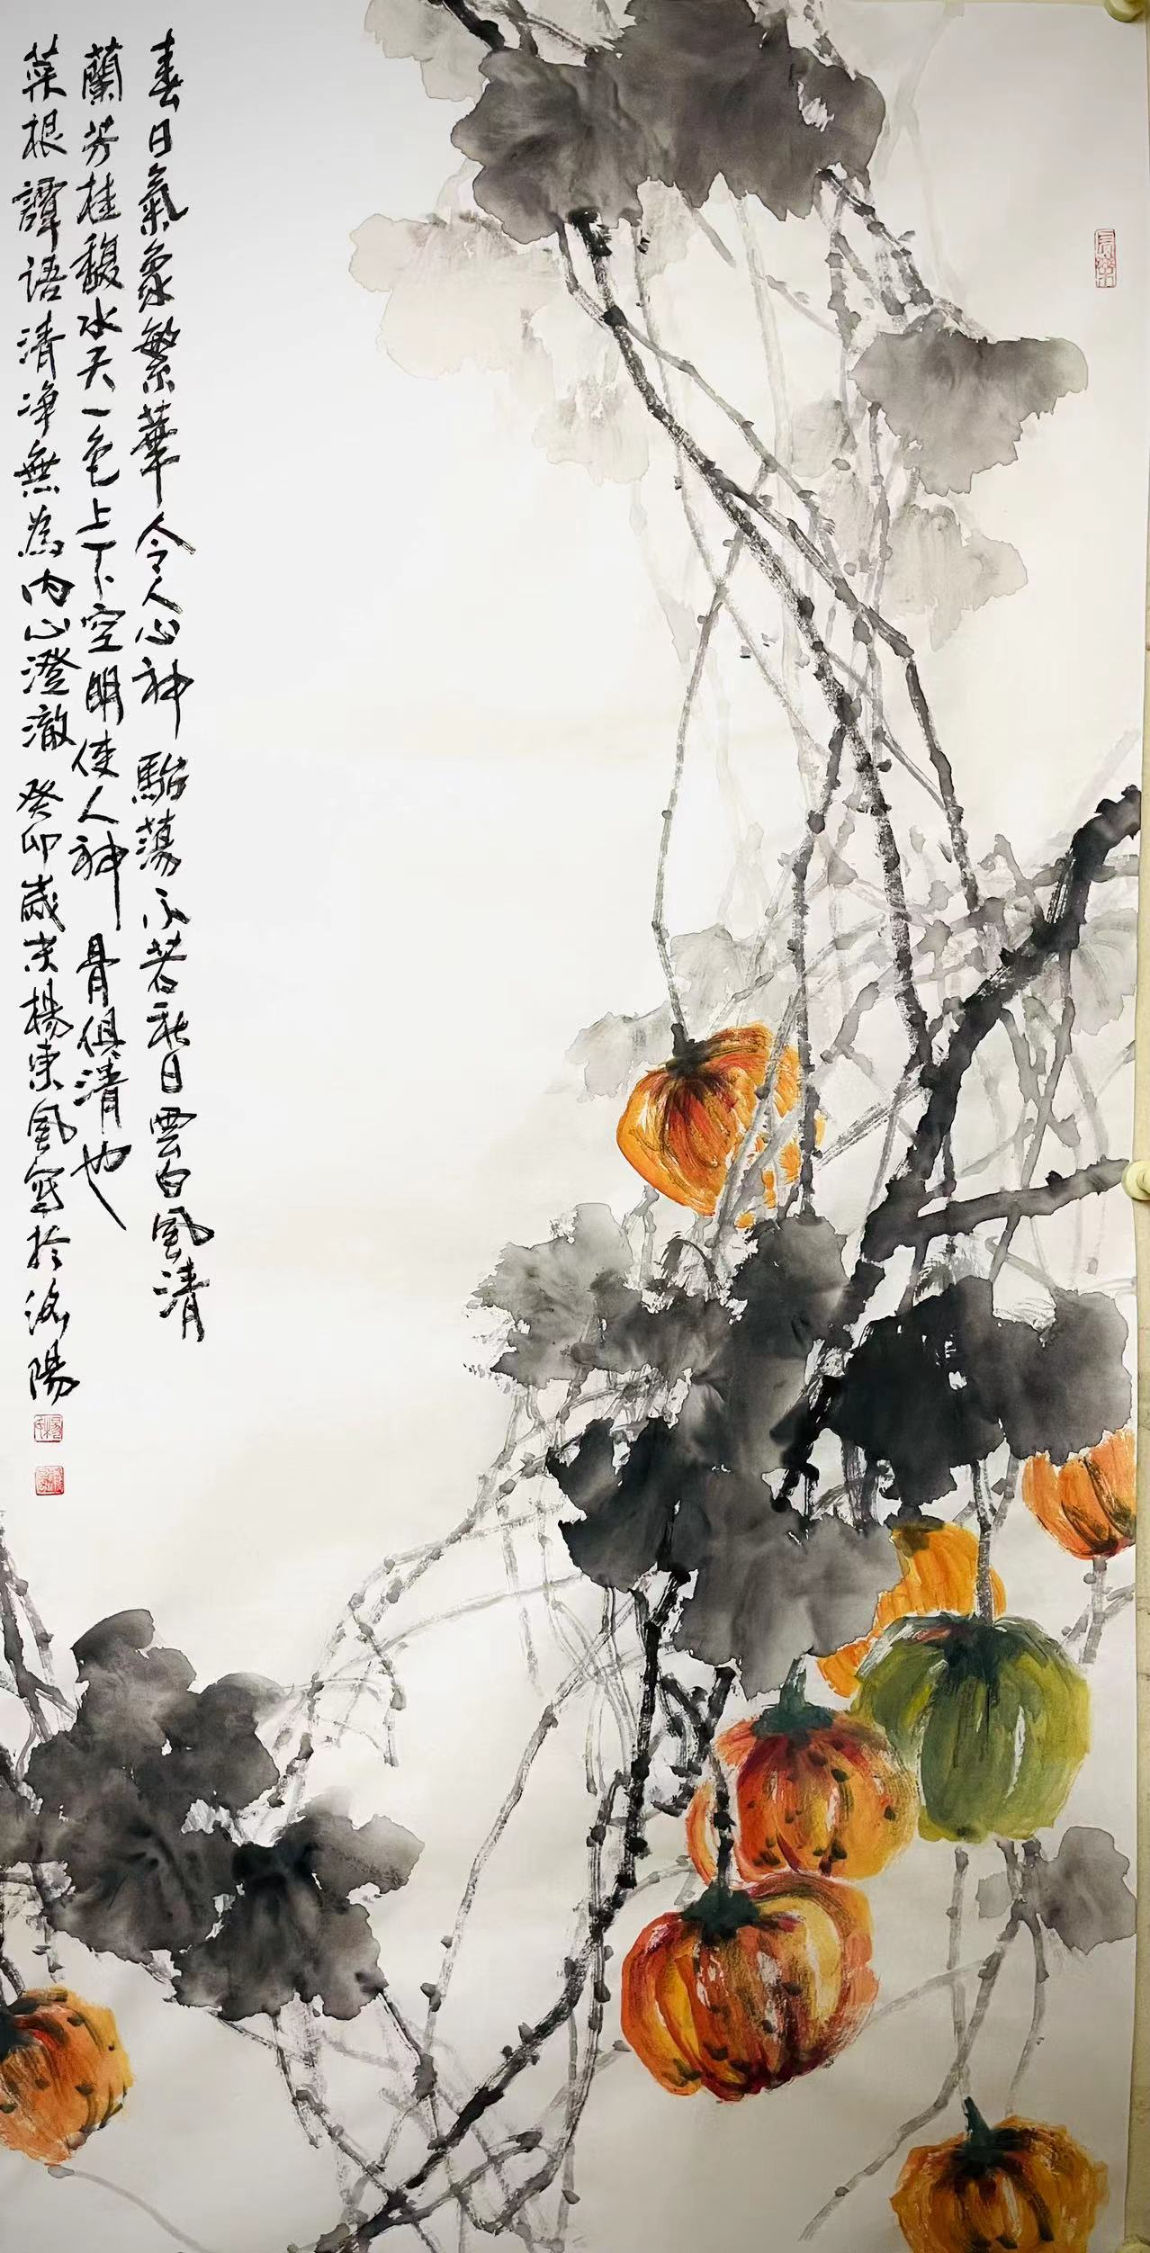 春日氣象繁華令人心神駘蕩不若秋日雲白風清
蘭芳桂馥水天一色上下空明使人神骨俱清也
菜根譚語清净無為内心澄澈癸卯歲末楊東風寫於洛陽